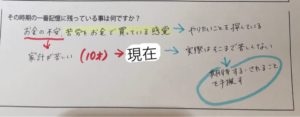 その時期の一番記憶に残っている事は何ですか?
お金の不安 苦労をお金で買っている感覚 → やりたいことを探している
家計が苦しい (10才) → 現在 → 実際はそこまで苦しくない
期待する・されること
を手放す